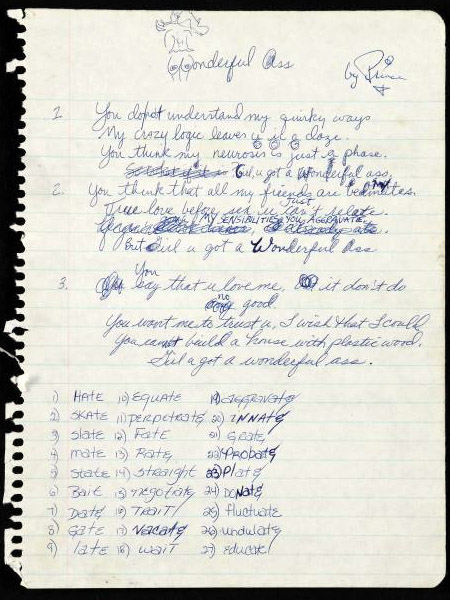 Wonderful Ass
by Prince
1. You do not understand my quirky ways
My crazy logic leaves u in a daze.
You think my neurosis is just a phase.
Girl, u got a Wonderful ass,
2. You think that all my friends are bed mates.
True love before sex u just can't relate.
MY SENSIBILITIES YOU AGGRAVATE
But Girl u got a Wonderful Ass
3. You say that u love me, it don't do
no good.
You want me to trust u, I wish that I could,
You cannot build a house with plastic wood.
Girl u got a wonderful ass.
1) HATE 10) EQUATE 19) aggravate
2) SKATE 11) PERPETRATE 20) INNATE
3) slate 12) FATE 21) GRATE
4) mate 13) RATE 22) PROBATE
5) STATE 14) STRAIGHT 23) PLATE
6) BAIT 15) negotiate 24) DONATE
7) DATE 16) TRAIT 25) fluctuate
8) GATE 17) VACATE 26) undulate
9) late 18) WAIT 27) educate